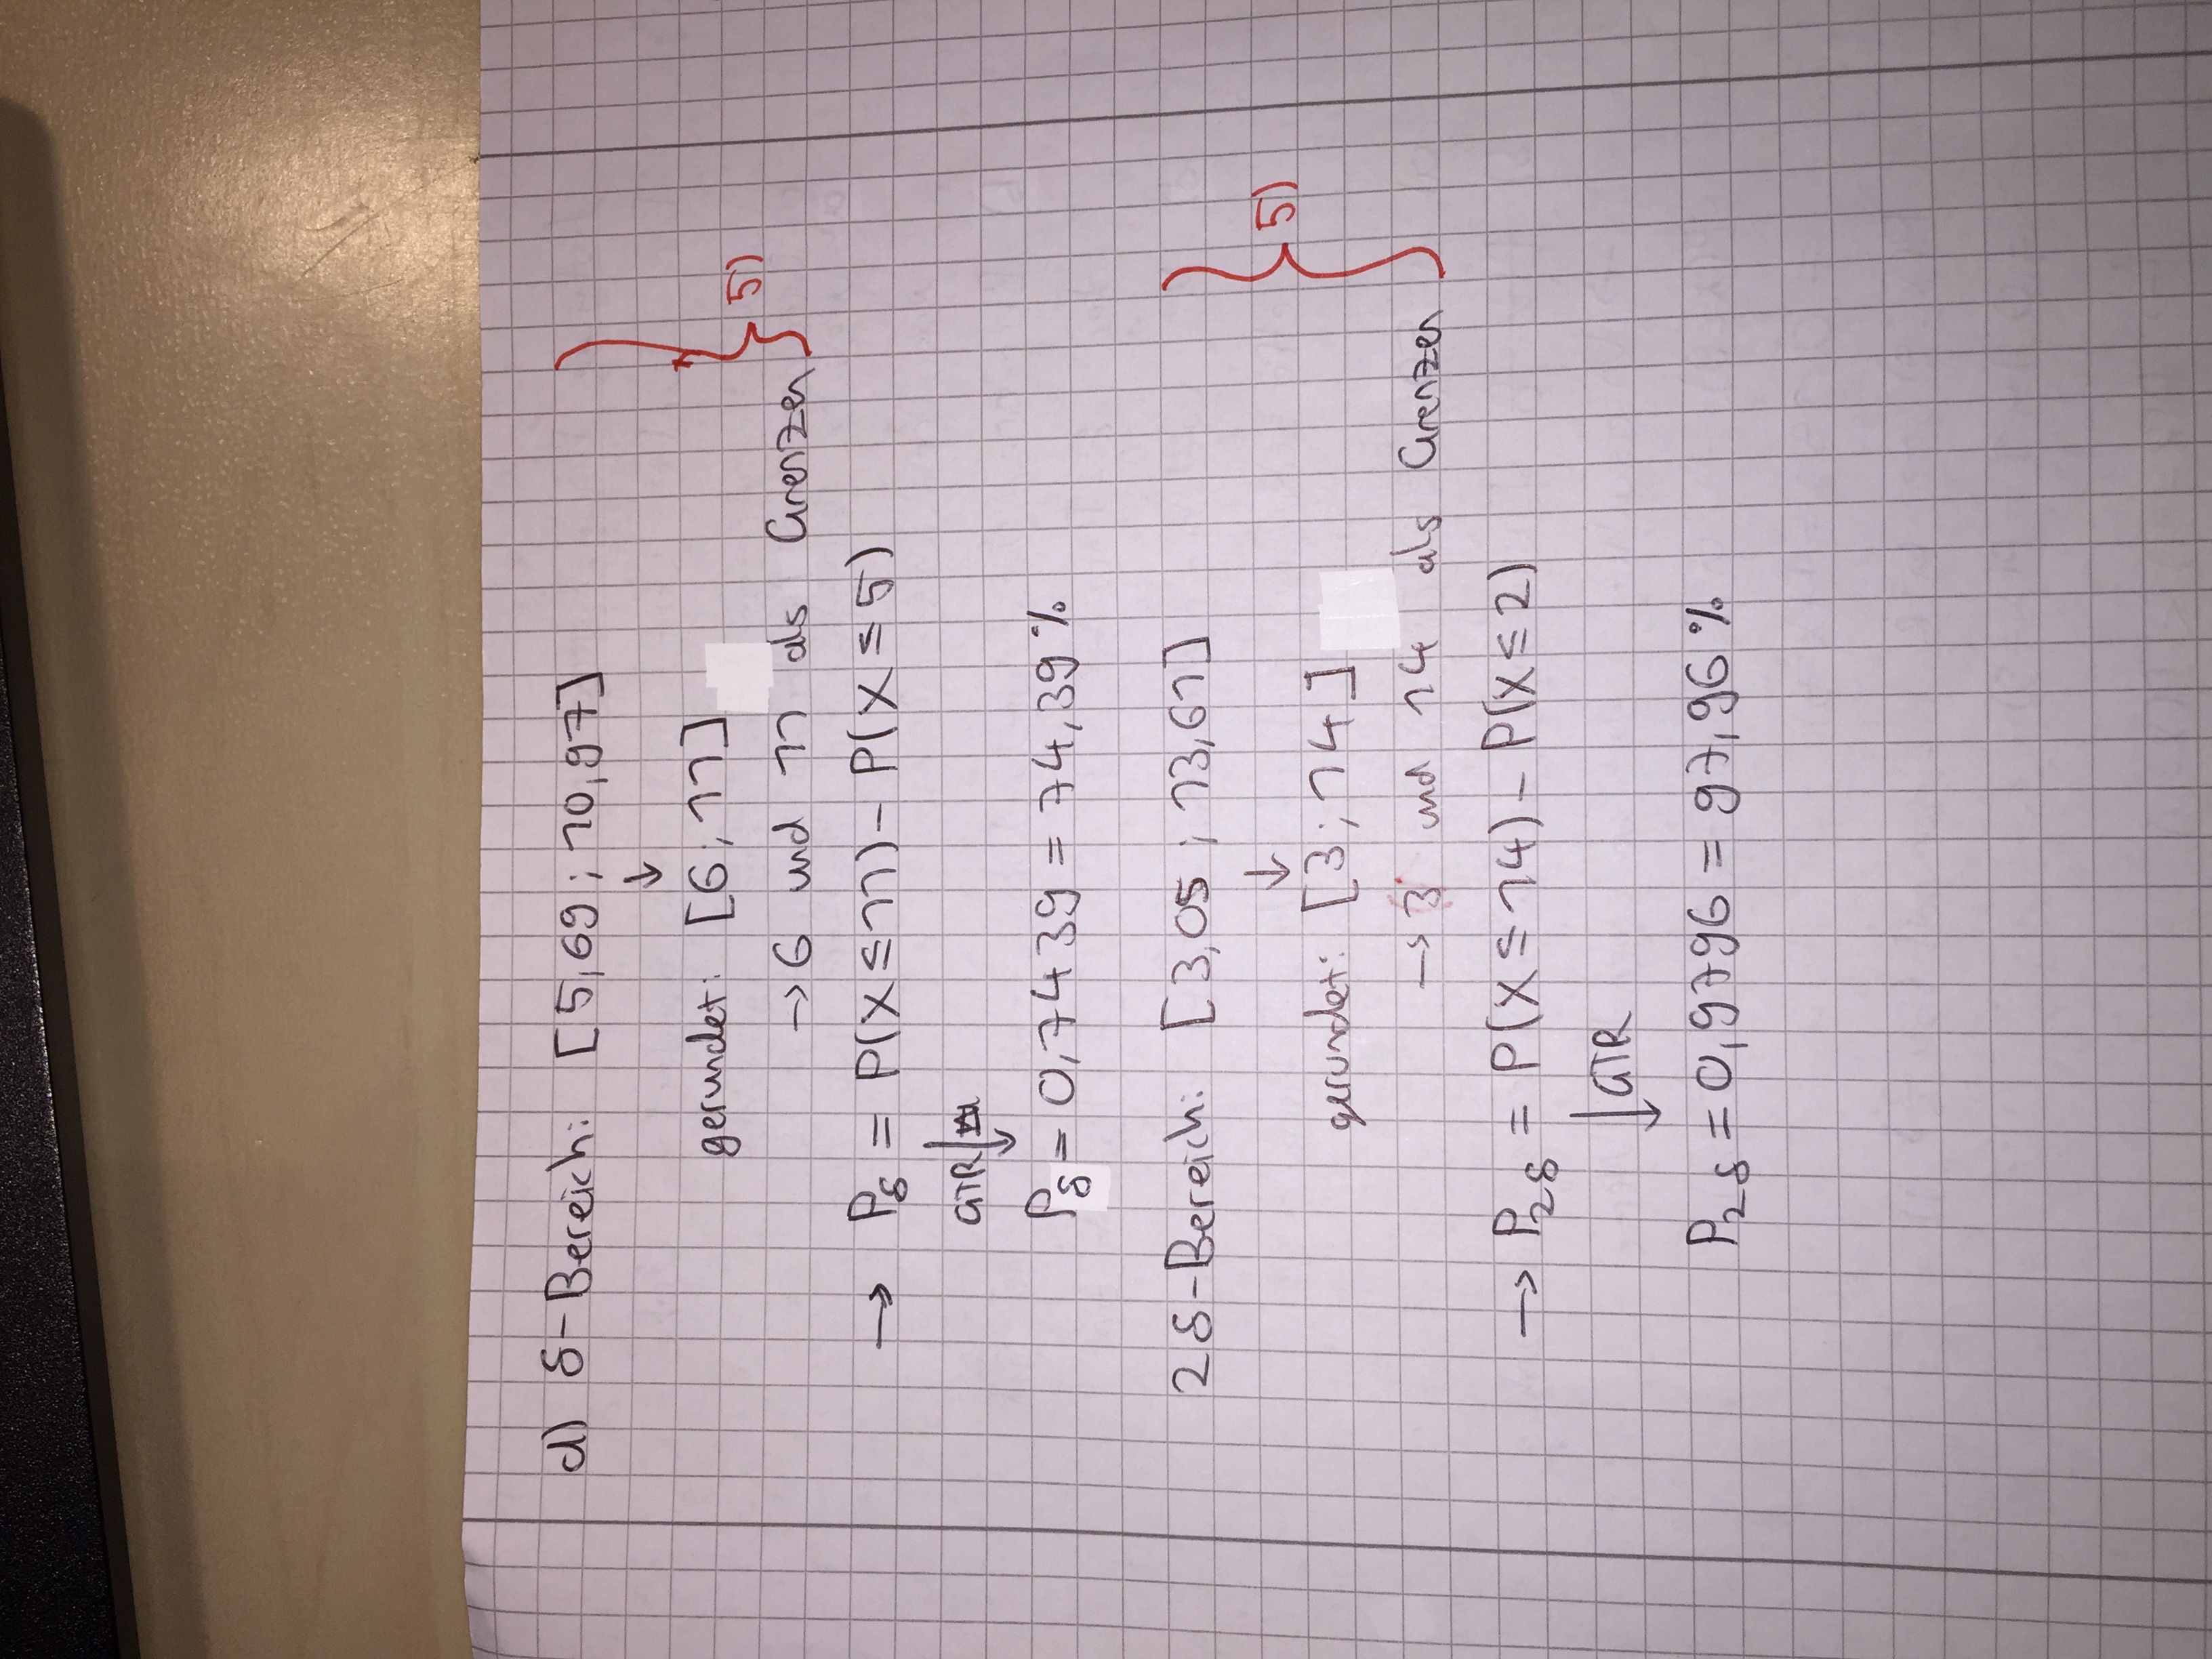 d) δ-Bereich: [5,69 ; 10,97]
↓
gerundet: [6 ; 11]
5)
→ 6 und 11 als Grenzen
→ Pδ = P(X ≤ 11) - P(X ≤ 5)
GTR ↓
Pδ = 0,7439 = 74,39 %
2δ-Bereich: [3,05 ; 13,61]
↓
5)
gerundet: [3 ; 14]
→ 3 und 14 als Grenzen
→ P2δ = P(X ≤ 14) - P(X ≤ 2)
↓ GTR
P2δ = 0,9796 = 97,96 %